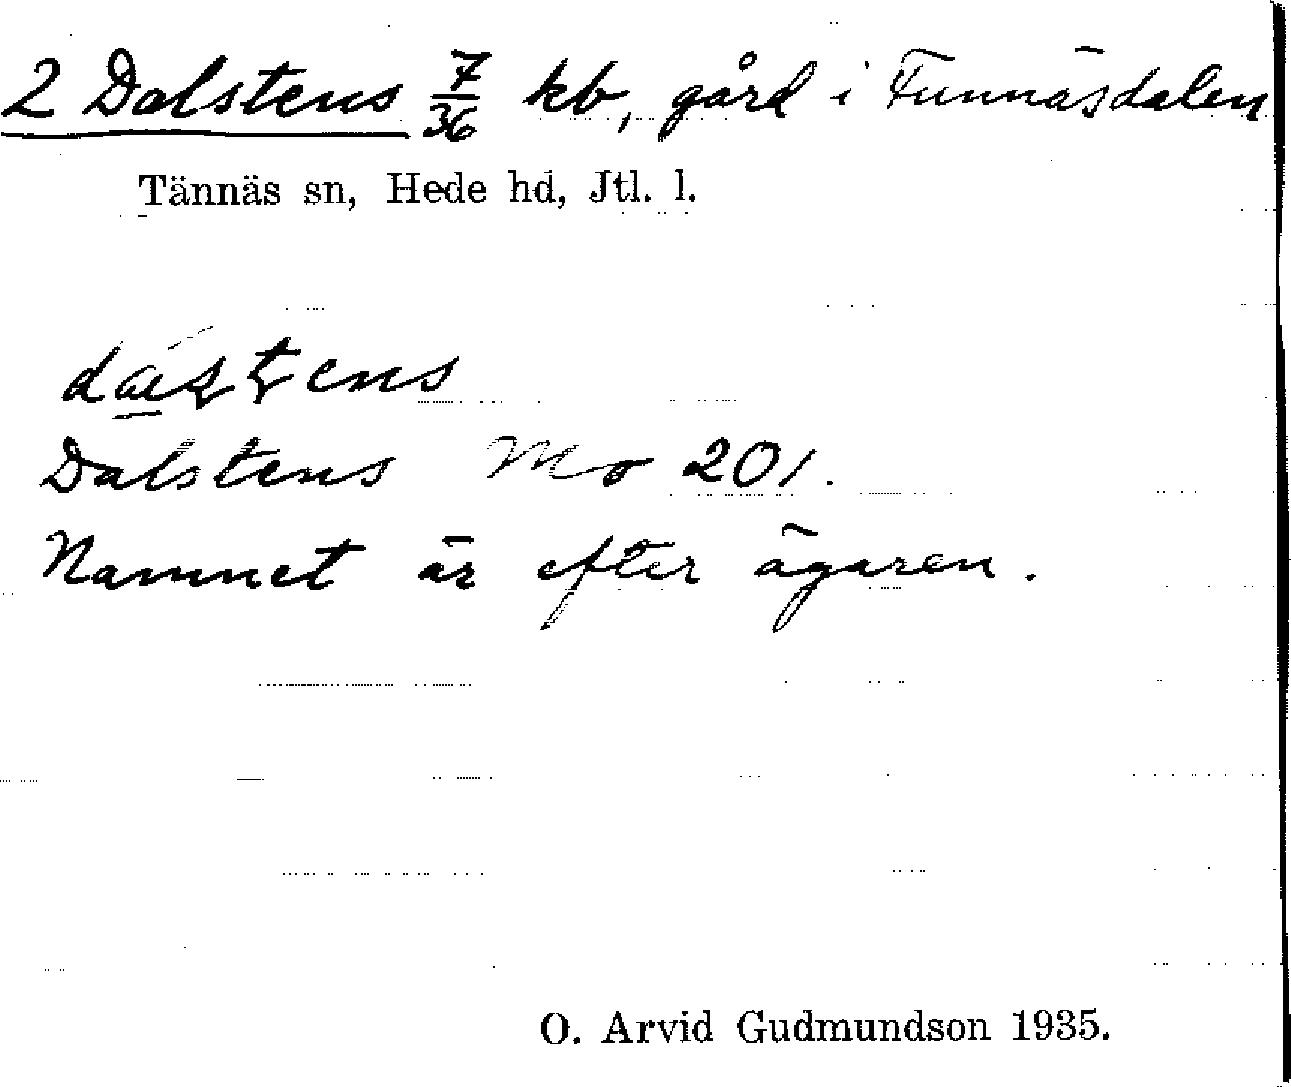 2 Dalstens 7/36 kb, gård i Funnäsdalen
Tännäs sn, Hede hd, Jtl. l.
Dalstens Mo 201.
Namnet är efter ägaren.
O. Arvid Gudmundson 1935.